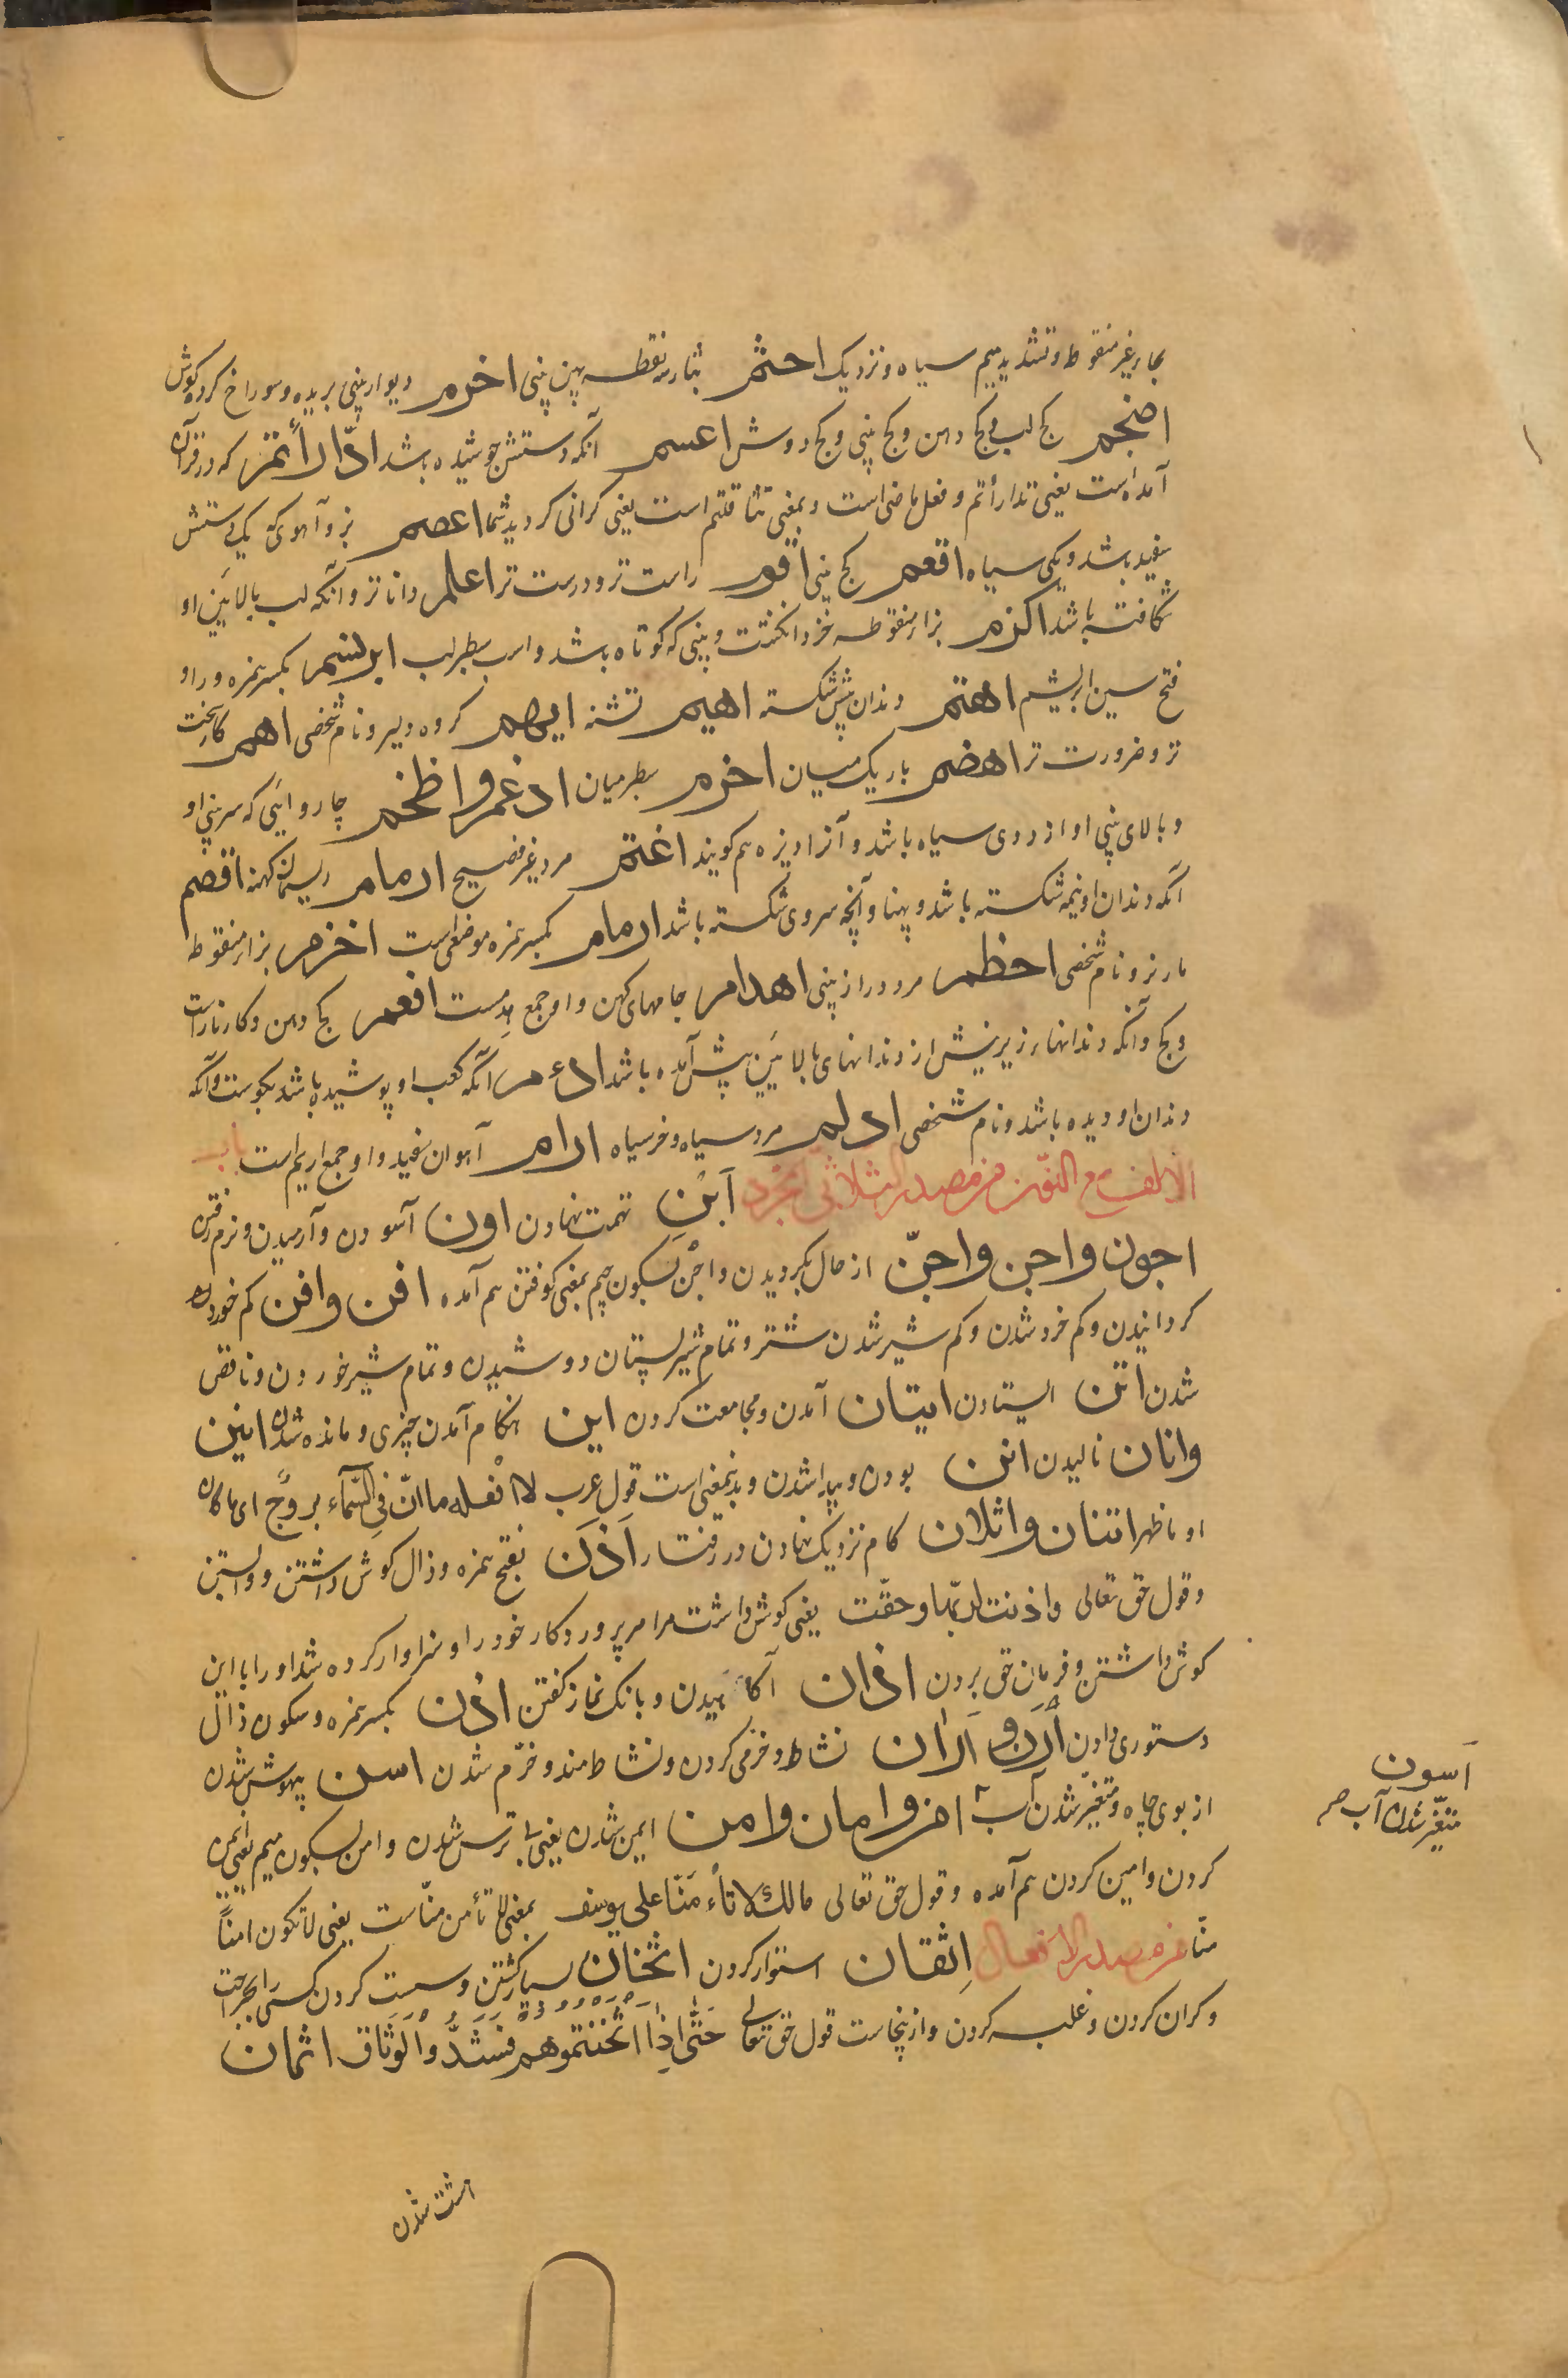 بحاء غیر منقوط و تشدید میم سیاه و نزدیک احثم بثاء سه نقطه پهن بینی اخرم دیوار بینی بریده و سوراخ کرده گوش
اضجم کج لب و کج دهن و کج بینی و کج دوش اعسم آنکه دستش جوشیده باشد ادّارأتم که در قرآن
آمده است یعنی تدارأتم و فعل ماضی است و بمعنی تثاقلتم است یعنی کرانی کردید شما اعصم بز و آهوی که یک دستش
سفید باشد و یکی سیاه اقعم کج بینی اقوم راست تر و درست تر اعلم داناتر و آنکه لب بالایین او
شکافته باشد اکزم بزاء منقوطه خرد انکشت و بینی که کوتاه باشد و اسب سطبر لب ابریسم بکسر همزه و راء و
فتح سین ابریشم اهتم دندان پیش شکسته اهیم تشنه ایهم کروه دلیر و نام شخصی اهم کار سخت
تر و ضرورت تر اهضم باریک میان اخرم سطبر میان ادغم و اظخم چاروائی که سر بینی او
و بالای بینی او از روی سیاه باشد و آنرا دیزه هم کویند اغتم مرد غیر فصیح ارمام ریسمان کهنه اقصم
آنکه دندان او نیمه شکسته باشد و پهنا و آنچه سروی شکسته باشد ارمام بکسر همزه موضعی است اخزم بزاء منقوطه
مار نر و نام شخصی احظم مرد دراز بینی اهدام جامهای کهن و او جمع هدم ست افعم کج دهن و کار ناراست
و کج و آنکه دندانهاء زیرینش از دندانهای بالایین پیش آمده باشد ادرم آنکه کعب او پوشیده باشد بکوست و آنکه
دندان او دیده باشد و نام شخصی ادلم مرد سیاه و خر سیاه ارام آهوان سفید و او جمع اریم است باب
الالف مع النون من مصدر الثلاثی المجرد اَبْن تهمت نهادن اون آسودن و آرمیدن و نرم رفتن
اجون و اجن و اجنّ از حال بکردیدن و اجْن بسکون جیم بمعنی کوفتن هم آمده افن و افن کم خورد
کردانیدن و کم خرد شدن و کم شیر شدن شتر و تمام شیر پستان دوشیدن و تمام شیر خوردن و ناقص
شدن اتن ایستادن ایتان آمدن و مجامعت کردن این هنکام آمدن چیزی و مانده شدن انین
وانان نالیدن انن بودن و پیدا شدن و بدینمعنی است قول عرب لا افعله ما انّ فی السّمآء بروجٌ ای ما کان
او ما ظهر اتنان و اثلان کام نزدیک نهادن در رفتار اَذَن بفتح همزه و ذال کوش داشتن و دانستن
و قول حق تعالی و اذنت لربّها و حقّت یعنی کوش داشت مر امر پروردکار خود را و سزاوار کرده شد او را با این
کوش داشتن و فرمان حق بردن اذان آکاهیدن و بانک نماز کفتن اذن بکسر همزه و سکون ذال
دستوری دادن اَرَن و اَران نشاط و خرمی کردن و نشاط مند و خرّم شدن اسن بیهوش شدن
از بوی چاه و متغیّر شدن آب امن و امان و امن ایمن شدن یعنی بی ترس شدن و امن بسکون میم بمعنی ایمن
کردن و امین کردن هم آمده و قول حق تعالی مالک لا تأمَنّا علی یوسف بمعنی لا تأمن منّاست یعنی لا تکون امناً
منّا من مصدر الافعال اِتقان استوار کردن اثخان بسیار کشتن و سست کردن کسی را بجراحت
و کران کردن و غلبه کردن و از ینجاست قول حق تعالی حَتّی اِذا اثخنتموهم فشدّوا الوثاق اثمان
اَسون
متغیّر شدن آب صح
هشت شدن